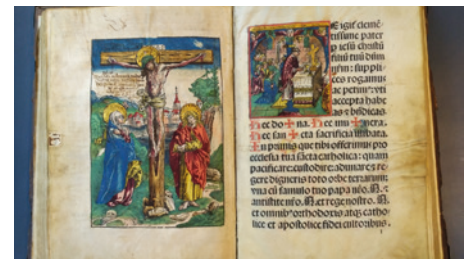 E igit̃ clemē-
tissime pater
p iesū christū
filiū tuū dñm
nr̃m: suppli-
ces rogamus
ac petim9: vti
accepta habe
as ⁊ bñdicas
Hec ✠ dona. Hec ✠ munera.
Hec san ✠ cta sacrificia illibata.
In primis que tibi offerimus pro
ecclesia tua sācta catholica: quam
pacificare: custodire: adunare: ⁊ re-
gere digneris toto orbe terrarum:
vna cū famulo tuo papa nr̃o. N. ⁊
antistite nr̃o. N. et rege nostro. N.
et omnib9 orthodoxis atq; catho-
lice et apostolice fidei cultoribus.